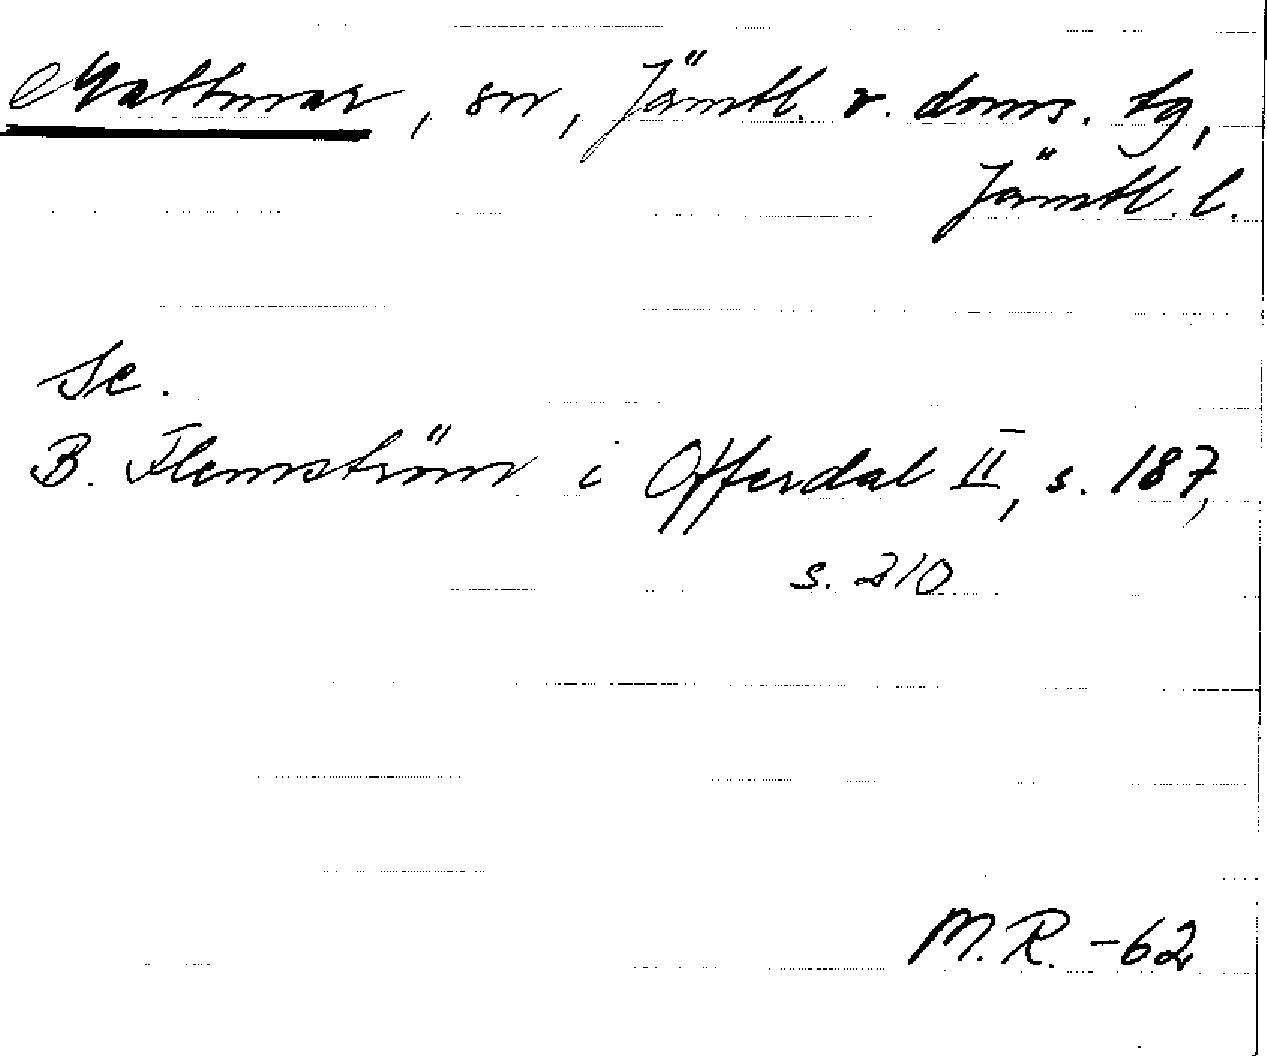 Mattmar, sn, Jämtl. v. doms. tg,
Jämtl. l.
Se.
B. Flemström i Offerdal II, s. 187,
s. 210
M.R. -62